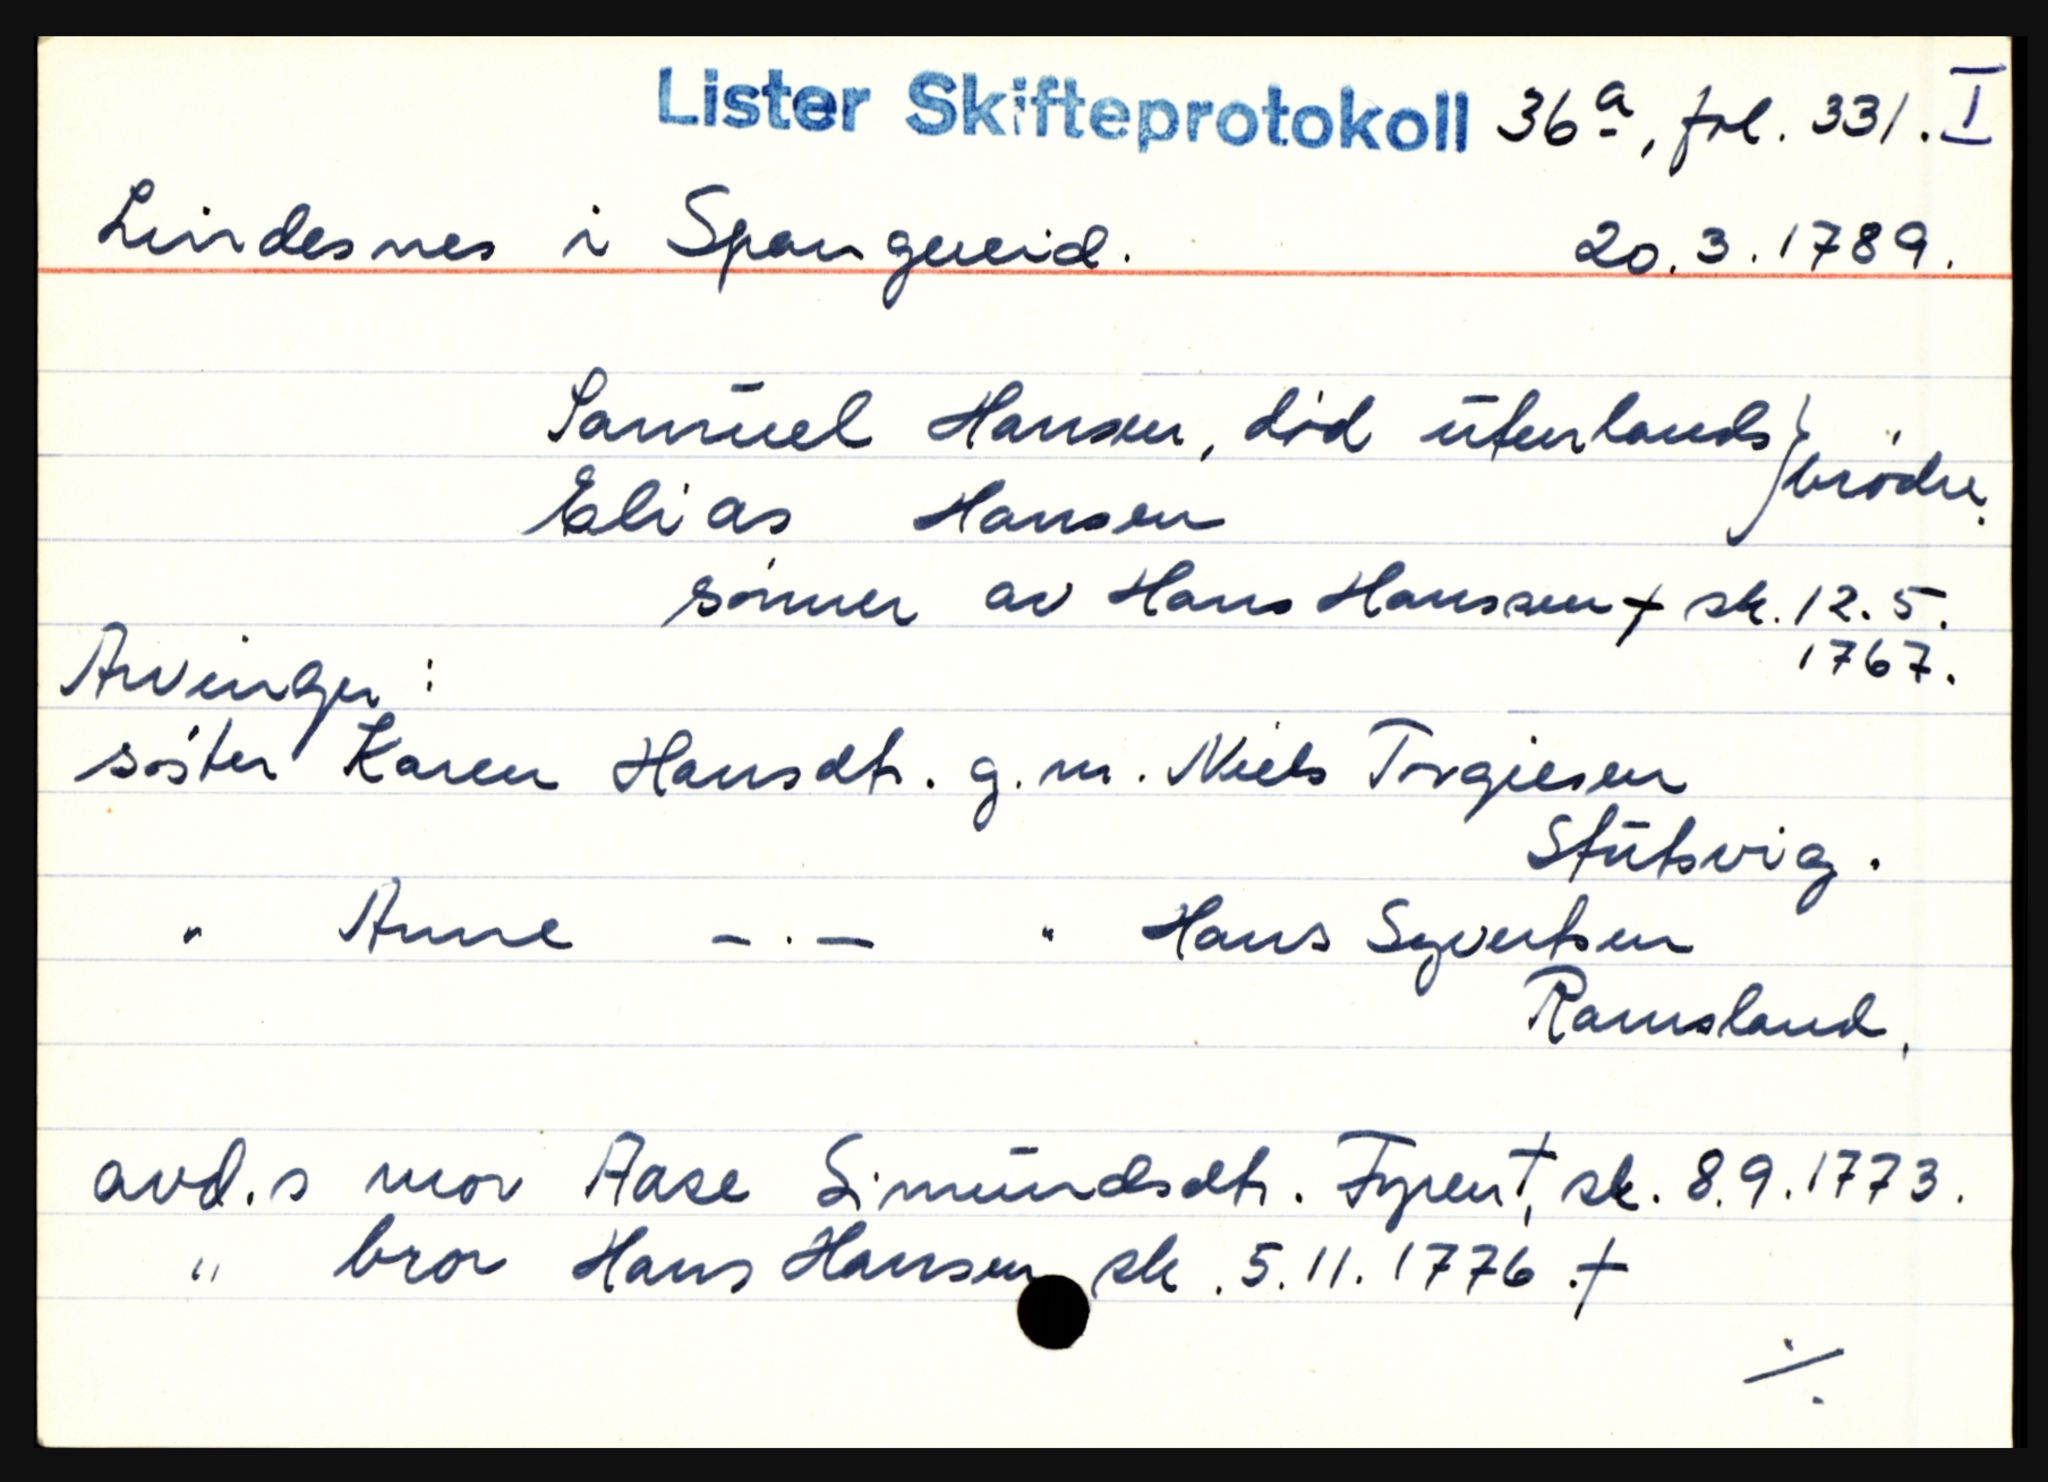 Lister Skifteprotokoll 36a, fol. 331. I
Lindesnes i Spangereid. 20.3.1789.
Samuel Hansen, död utenlands } brödre.
Elias Hansen
sönner av Hans Hanssen † sk. 12.5.
1767.
Arvinger:
söster Karen Hansdtr. g.m. Niels Torgiesen
Stutsvig.
" Anne —.— " Hans Syvertsen
Ramsland.
avd.s mor Aase Simundsdtr. †, sk. 8.9.1773.
" bror Hans Hansen sk. 5.11.1776. †
·/.